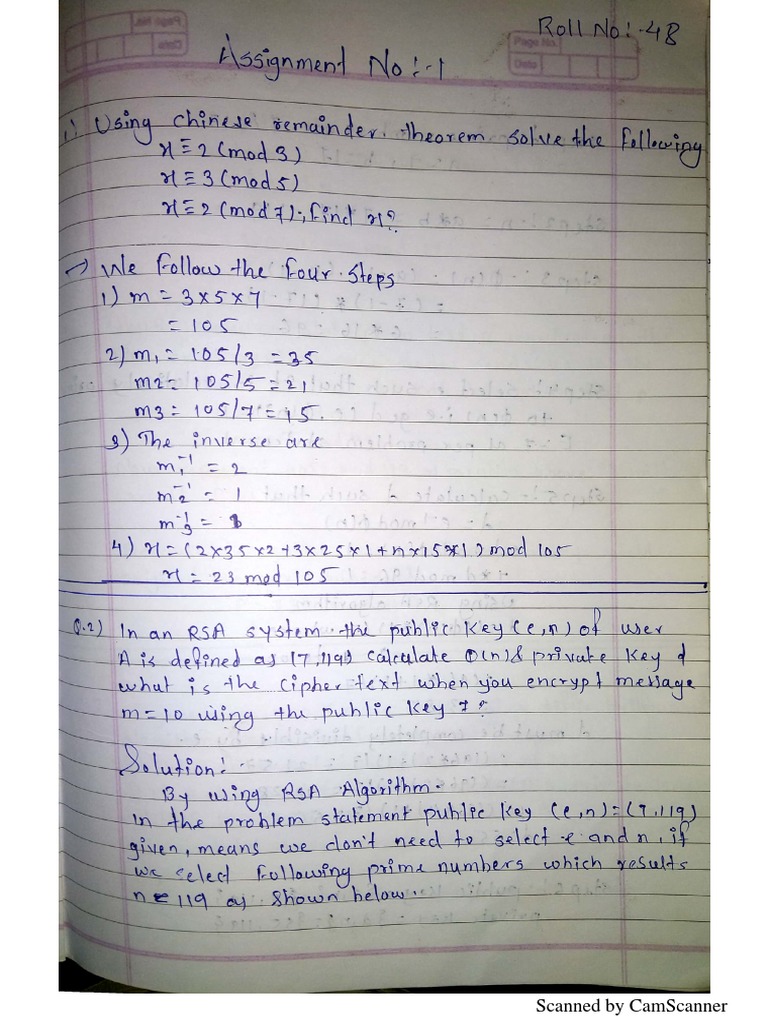 Roll No:-48
Page No.
Date
Assignment No:-1
1: Using chinese remainder. theorem solve the following
x≡2(mod3)
x≡3(mod5)
x≡2(mod7), find x?
→ We follow the four steps
1) m = 3x5x7
= 105
2) m1 = 105/3 = 35
m2 = 105/5 = 21
m3 = 105/7 = 15.
3) The inverse are
m1^-1 = 2
m2^-1 = 1
m3^-1 = 1
4) x = (2x35x2+3x25x1+nx15x1) mod 105
x = 23 mod 105
Q.2) In an RSA system the public key (e,n) of user
A is defined as (7,119) calculate Φ(n) & private key d
what is the cipher text when you encrypt message
m=10 using the public key 7?
Solution:-
By using RSA Algorithm.
In the problem statement public key (e,n)=(7,119)
given, means we don't need to select e and n, if
we select following prime numbers which results
n = 119 as shown below.
Scanned by CamScanner